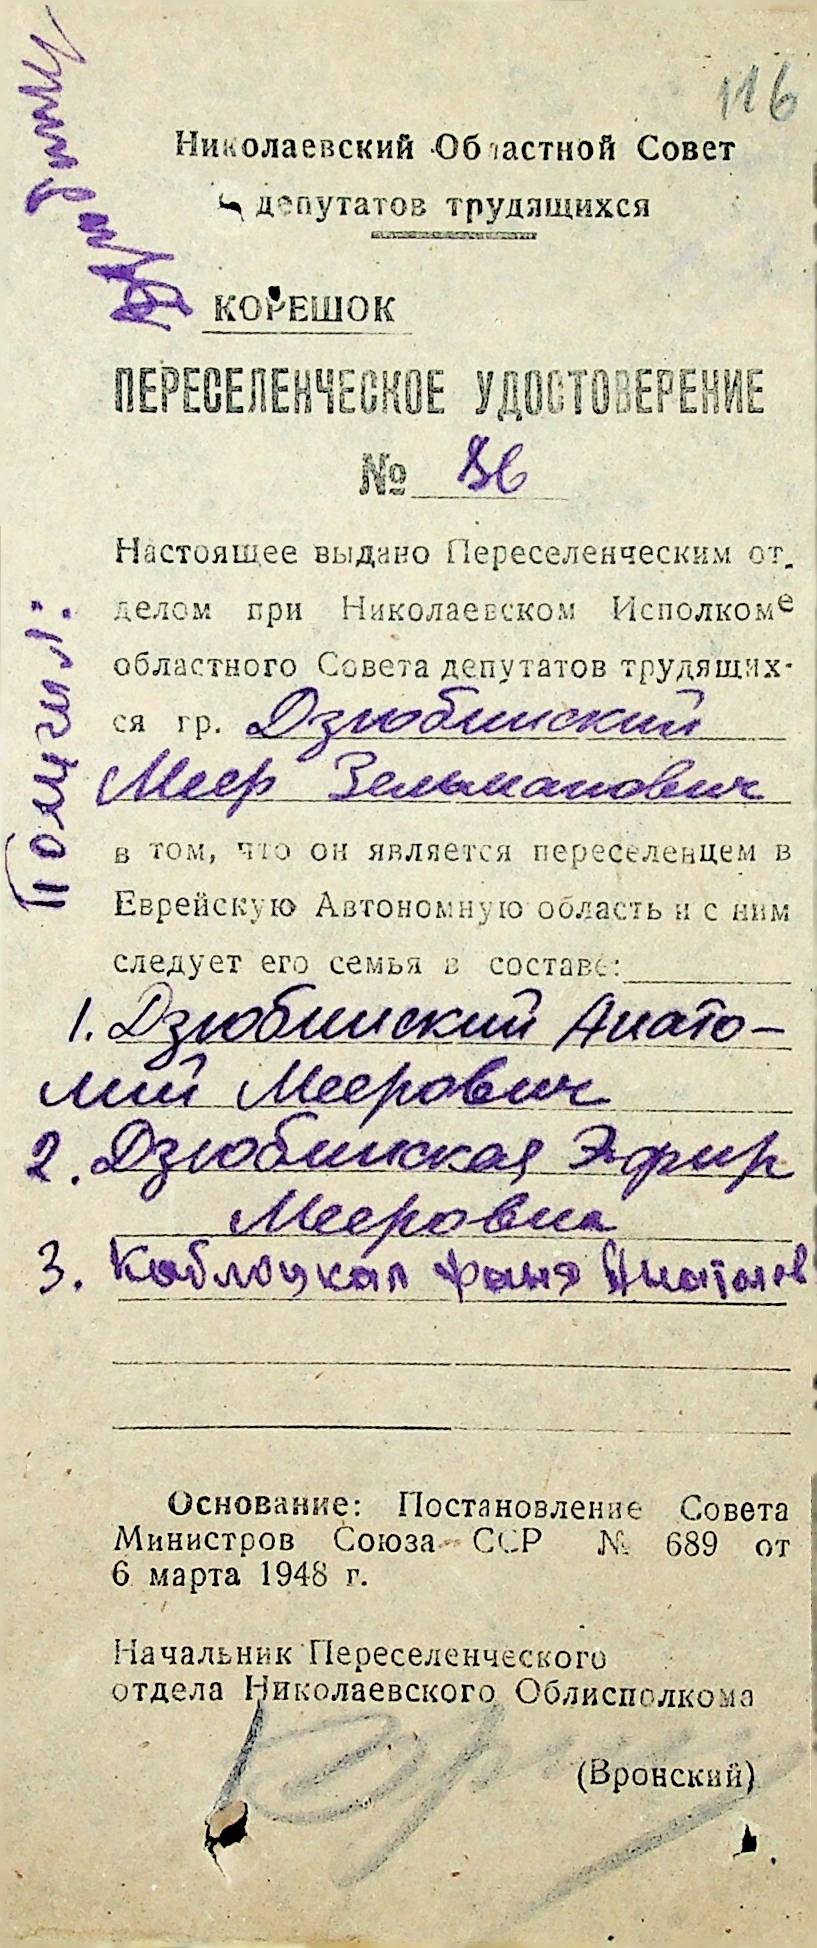 116
Николаевский Областной Совет
депутатов трудящихся
КОРЕШОК
ПЕРЕСЕЛЕНЧЕСКОЕ УДОСТОВЕРЕНИЕ
№ 86
Настоящее выдано Переселенческим от-
делом при Николаевском Исполкоме
областного Совета депутатов трудящих-
ся гр. Дзюбинский
Меер Зельманович
в том, что он является переселенцем в
Еврейскую Автономную область и с ним
следует его семья в составе:
1. Дзюбинский Анато-
лий Меерович
2. Дзюбинская Эсфир
Мееровна
3. Каблуцкая Фаня Анатолев
Основание: Постановление Совета
Министров Союза ССР № 689 от
6 марта 1948 г.
Начальник Переселенческого
отдела Николаевского Облисполкома
(Вронский)
Получил: